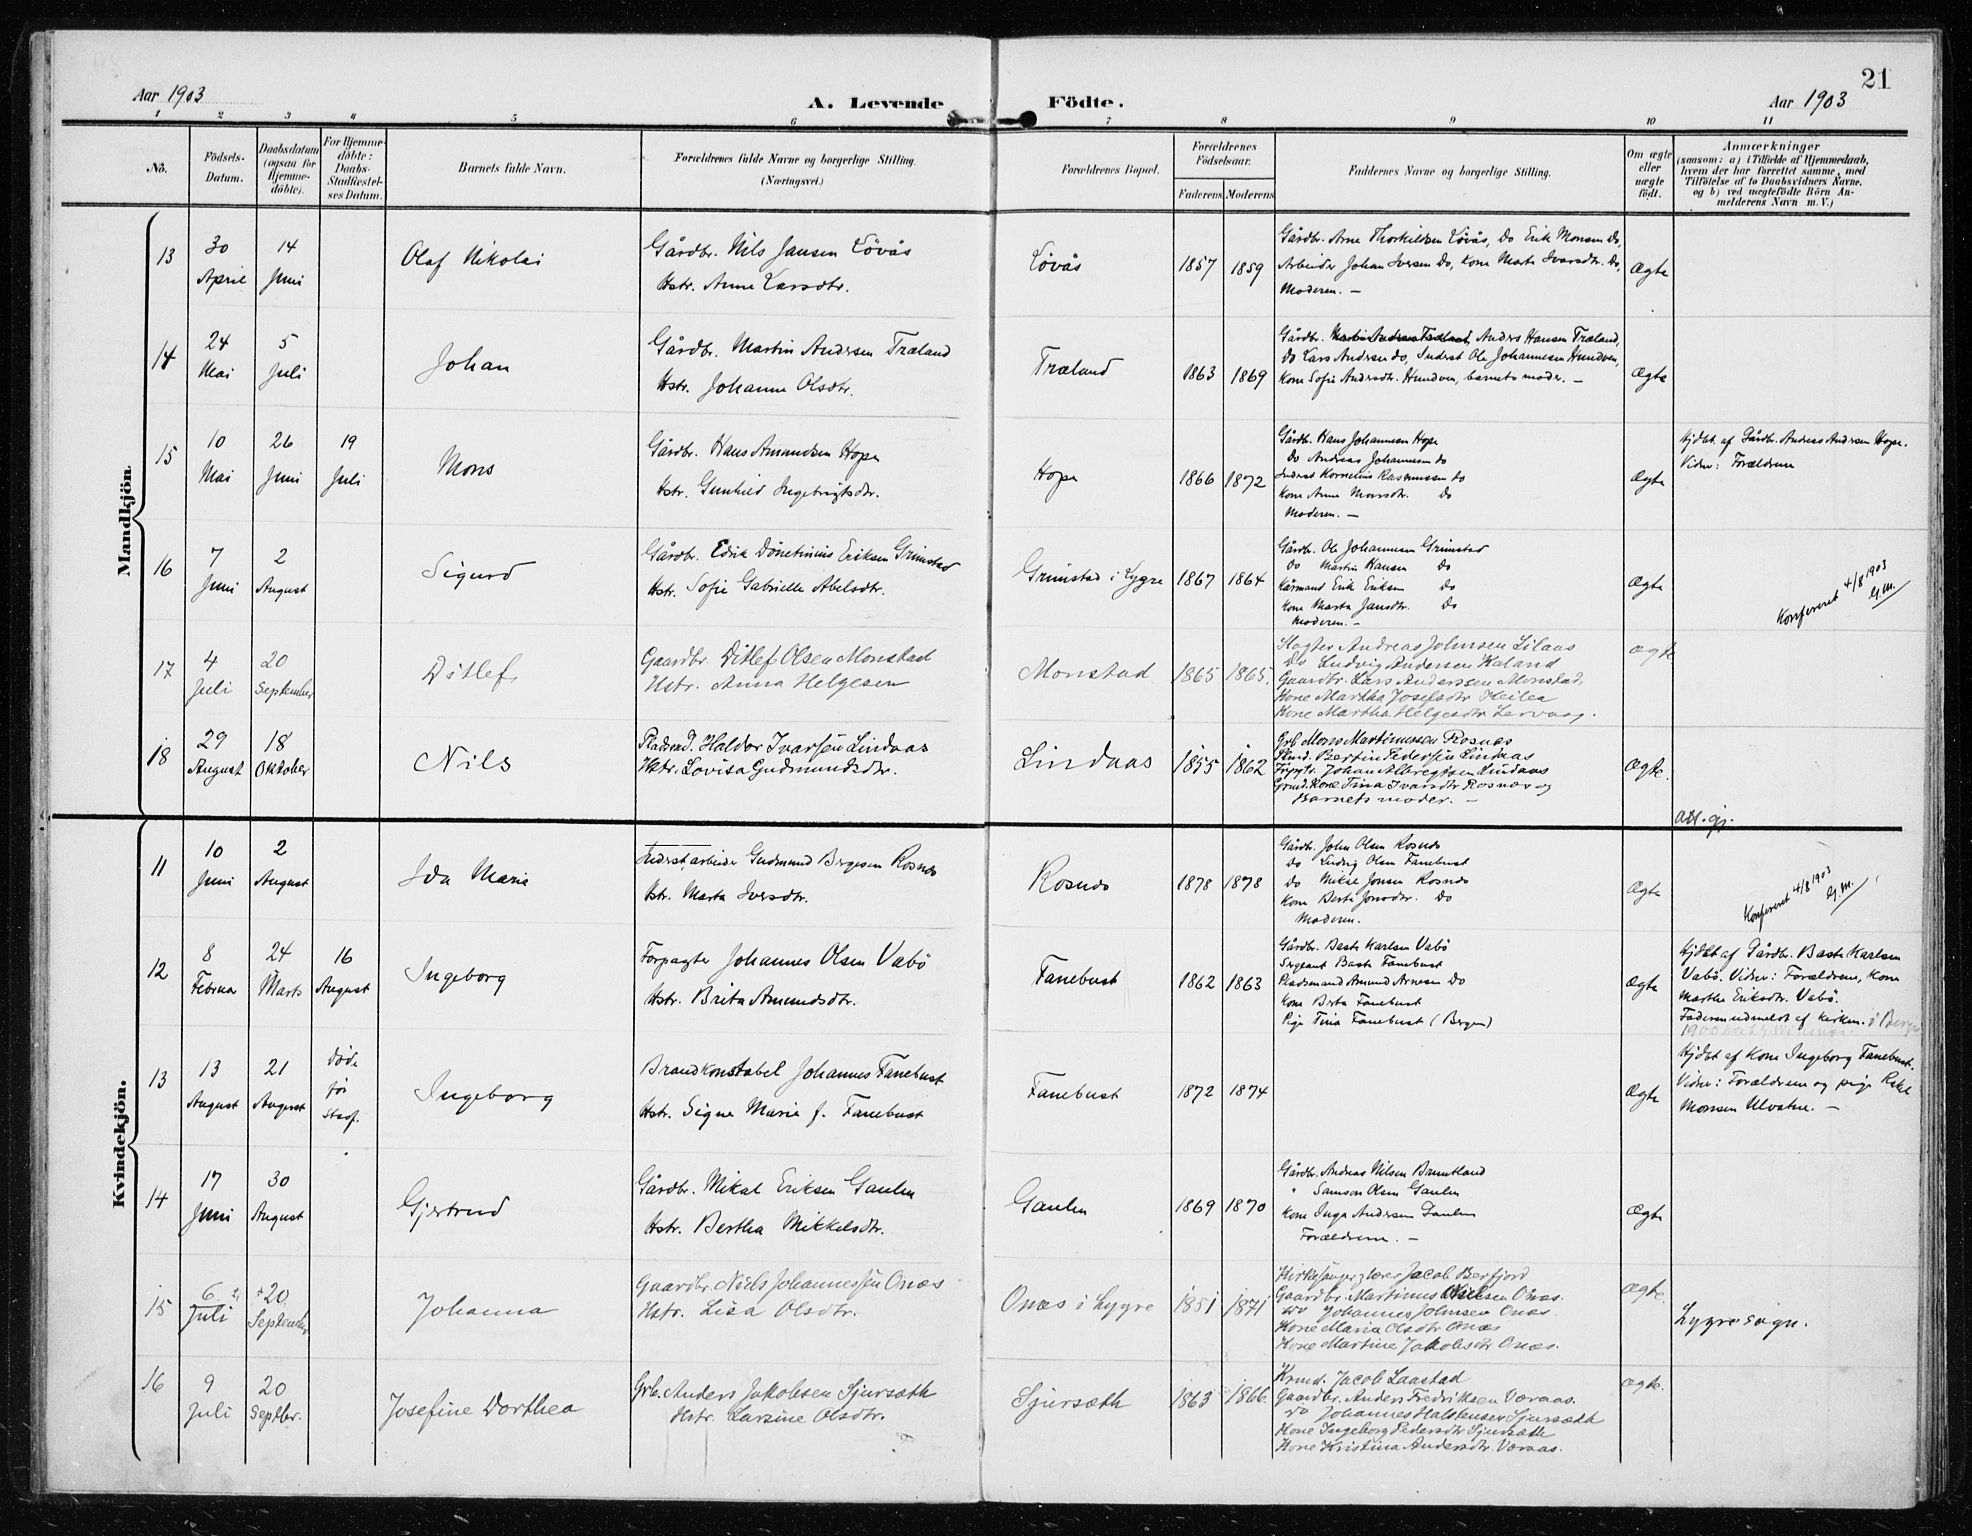 21
Aar 1903
A. Levende Födte.
Aar 1903
1 2 3 4 5 6 7 8 9 10 11
No.
Födsels-
Datum.
Daabsdatum
(ogsaa for
Hjemme-
döbte).
For Hjemme-
döbte:
Daabs-
Stadfæstel-
ses Datum.
Barnets fulde Navn.
Forældrenes fulde Navne og borgerlige Stilling.
(Næringsvei.)
Forældrenes Bopæl.
Forældrenes
Födselsaar.
Faderens Moderens
Faddernes Navne og borgerlige Stilling.
Om ægte
eller
uægte
födt.
Anmærkninger
(saasom: a) i Tilfælde af Hjemmedaab,
hvem der har forrettet samme, med
Tilföielse af to Daabsvidners Navne,
og b) ved uægtefödte Börn An-
melderens Navn m.V.)
Mandkjön
13
30
April
14
Juni
Olaf Nikolai
Gårdbr. Nils Jansen Lövås
Hstr. Anne Larsdtr.
Lövås
1857 1859
Gårdbr. Arne Thorkildsen Lövås, Do Erik Monsen Do,
Arbeider Johan Iversen Do, Kone Marte Ivarsdtr. Do,
Moderen. —
Ægte
14
24
Mai
5
Juli
Johan
Gårdbr. Martin Andersen Træland
Hstr. Johanne Olsdtr.
Træland
1863 1869
Gårdbr. Anders Hansen Træland,
Do Lars Andersen do, Inderst Ole Johannesen Hundven,
Kone Sofie Andersdtr. Hundven, barnets moder. —
Ægte
15
10
Mai
26
Juni
19
Juli
Mons
Gårdbr. Hans Amundsen Hope
Hstr. Gunhild Ingebrigtsdtr.
Hope
1866 1872
Gårdbr. Hans Johannesen Hope
Do Andreas Johannesen do
Inderst Kornelius Rasmussen do
Kone Anne Monsdtr. Do
Moderen. —
Ægte
Hjdbt. af Gårdbr. Andreas Andersen Hope.
Vidner: Forældrene
16
7
Juni
2
August
Sigurd
Gårdbr. Edik Dönetinius Eriksen Grimstad
Hstr. Sofie Gabrielle Abelsdtr.
Grimstad i Lygre
1867 1864
Gårdbr. Ole Johannesen Grimstad
Do Martin Hansen Do
Kårmand Erik Eriksen Do
Kone Marta Jansdtr. Do
Moderen. —
Ægte
Konfereret 4/8 1903
G.M.
17
4
Juli
20
September
Ditlef
Gaardbr. Ditlef Olsen Monstad
Hstr. Anna Helgesen
Monstad
1865 1865.
Slagter Andreas Johnsen Lilaas
Do Ludvig Andersen Kaland
Gaardbr. Lars Anderssen Monstad.
Kone Martha Josefsdtr Keilea
Kone Martha Helgesdtr Lervaag.
Ægte
18
29
August
18
Oktober
Nils
Pladsmd. Haldor Ivarsen Lindaas
Hstr. Lovisa Gudmundsdtr.
Lindaas
1855 1862
Grb Mons Martinussen Rosnes
Plmd. Bertin Pedersen Lindaas
Forpgtr. Johan Albregtsen Lindaas
Grmd. Kone Tina Ivarsdtr Rosnes og
Barnets moder. —
Ægte.
Att. gj.
Kvindekjön.
11
10
Juni
2
August
Ida Marie
Inderst, arbeider Gudmund Bergesen Rosnes
Hstr. Marta Iversdtr.
Rosnes
1878 1878
Gårdbr. John Olsen Rosnes
Do Ludvig Olsen Fanebust
Do Mikse Jonsen Rosnes
Kone Berte Jonsdtr. Do
Moderen.
Ægte
Konfereret 4/8 1903
G.M.
12
8
Februar
24
Marts
16
August
Ingeborg
Forpagter Johannes Olsen Vabö
Hstr. Brita Amundsdtr.
Fanebust
1862 1863
Gårdbr. Baste Karlsen Vabö
Sergeant Baste Fanebust
Pladsemand Amund Arnesen Do
Kone Berta Fanebust
Pige Tina Fanebust (Bergen)
Ægte
Hjdbt af Gårdbr. Baste Karlsen
Vabö. Vidner: Forældrene, Kone
Marthe Eriksdtr. Vabö.
Faderen udmeldt af kirken. i Bergen
13
13
August
21
August
Döde
för
Stadf.
Ingeborg
Brandkonstabel Johannes Fanebust
Hstr. Signe Marie f. Fanebust
Fanebust
1872 1874
Ægte
Hjdbt af Kone Ingeborg Fanebust.
Vidner: Forældrene og pige Rakel
Monsen Ulvatne. —
14
17
Juni
30
August
Gjertrud
Gårdbr. Mikal Eriksen Gaulen
Hstr. Bertha Mikkelsdtr.
Gaulen
1869 1870
Gårdbr. Andreas Nilsen Bruntland
" Samson Olsen Gaulen
Kone Inga Andersen Gaulen
Forældrene. —
Ægte
15
6
Juli
20
September
Johanna
Gaardbr. Niels Johannessen Onæs
Hstr. Lisa Olsdtr.
Onæs i Lygre
1851 1871
Kirkesanger, lærer Jacob Berfjord
Gaardbr. Martinus Nielsen Onæs.
Do Johannes Johnsen Onæs.
Kone Maria Olsdtr Onæs
Kone Martine Jakobsdtr Onæs.
Ægte.
Lygre sogn.
16
9
Juli
20
Septber.
Josefine Dorthea
Grb. Anders Jakobsen Sjursæth
Hstr. Larsine Olsdtr.
Sjursæth
1863 1866.
Krmd. Jacob Laastad
Gaardbr. Anders Fredriksen Væraas.
Do Johannes Halstensen Sjursæth
Kone Ingeborg Pedersdtr Sjursæth
Kone Kristina Andersdtr. Væraas.
Ægte.